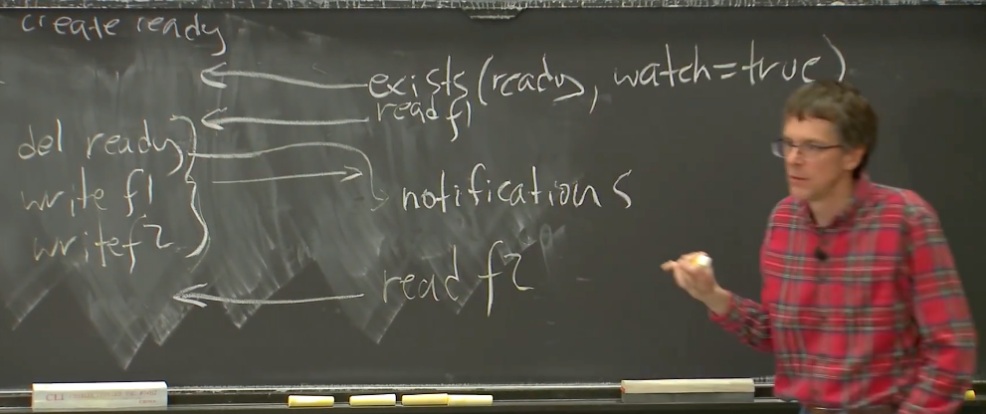 create ready
exists(ready, watch=true)
read f1
del ready
write f1
write f2
notifications
read f2